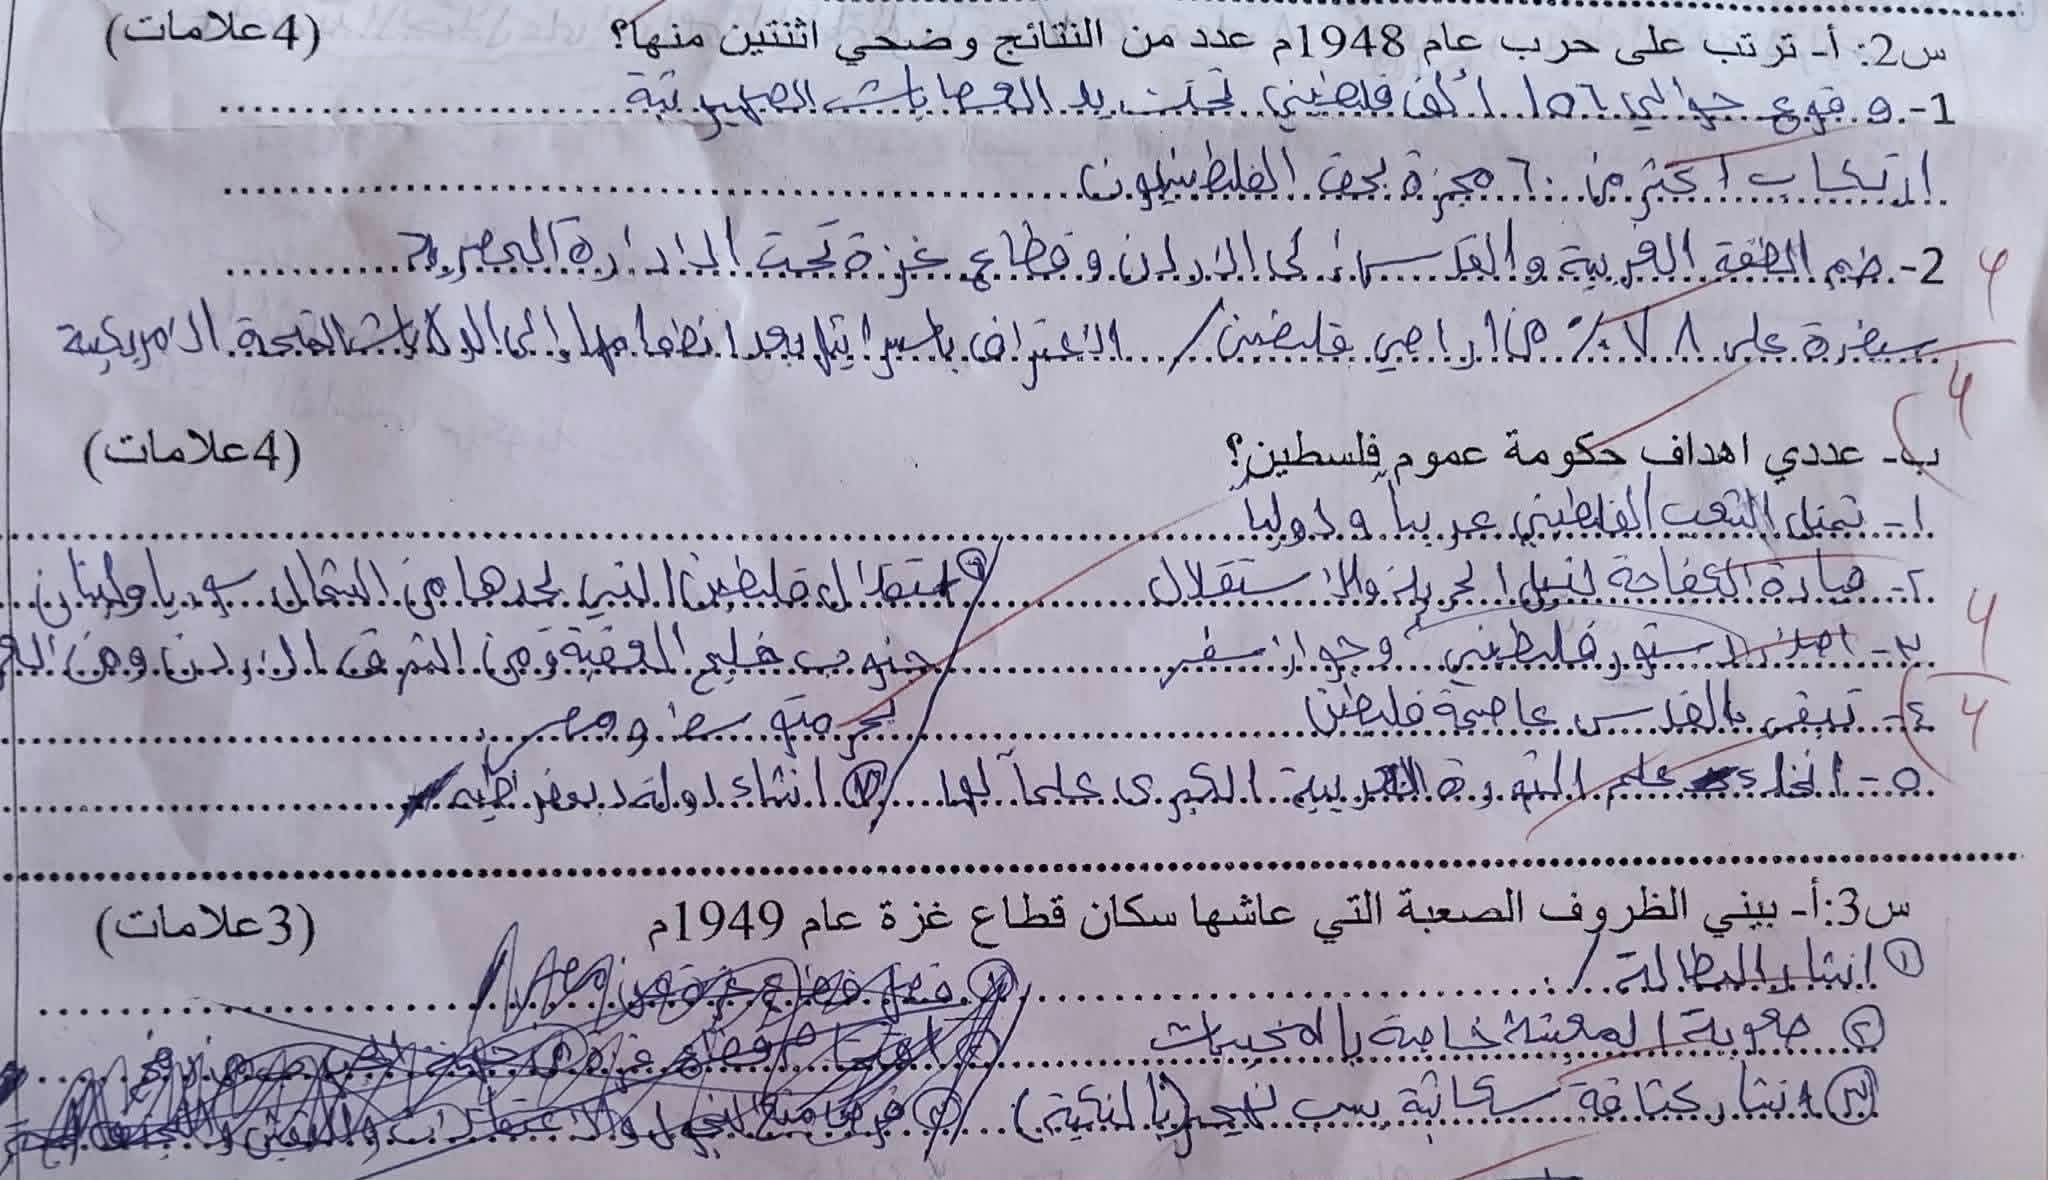 س2: أ- ترتب على حرب عام 1948م عدد من النتائج وضحي اثنتين منها؟ (4علامات)
1- وقوع حوالي ١٥٦ ألف فلسطيني تحت يد العصابات الصهيونية
ارتكاب اكثر من ٦٠ مجزرة بحق الفلسطينيون
2- ضم الضفة الغربية والقدس إلى الاردن وقطاع غزة تحت الادارة المصرية
سيطرة على ٧٨٪ من اراضي فلسطين / الاعتراف باسرائيل بعد انضمامها إلى الولايات المتحدة الامريكية
4/4
ب- عددي اهداف حكومة عموم فلسطين؟ (4علامات)
١- تمثيل الشعب الفلسطيني عربياً ودوليا
٢- قيادة الكفاحة لنيل الحرية والاستقلال
٣- اصدار دستور فلسطيني وجواز سفر
٤- تبقى بالقدس عاصمة فلسطين
٥- اتخاذ علم الثورة العربية الكبرى علماً لها
٦ استقلال فلسطين التي يحدها من الشمال سوريا ولبنان
جنوب خليج العقبة ومن الشرق الاردن ومن
بحر متوسط ومصر
٧ انشاء دولة ديمقراطية
4/4
س3:أ- بيني الظروف الصعبة التي عاشها سكان قطاع غزة عام 1949م (3علامات)
١ انتشار البطالة /
٢ صعوبة المعيشة خاصة بالمخيمات
٣ انتشار كثافة سكانية بسبب تهجير (بالنكبة)